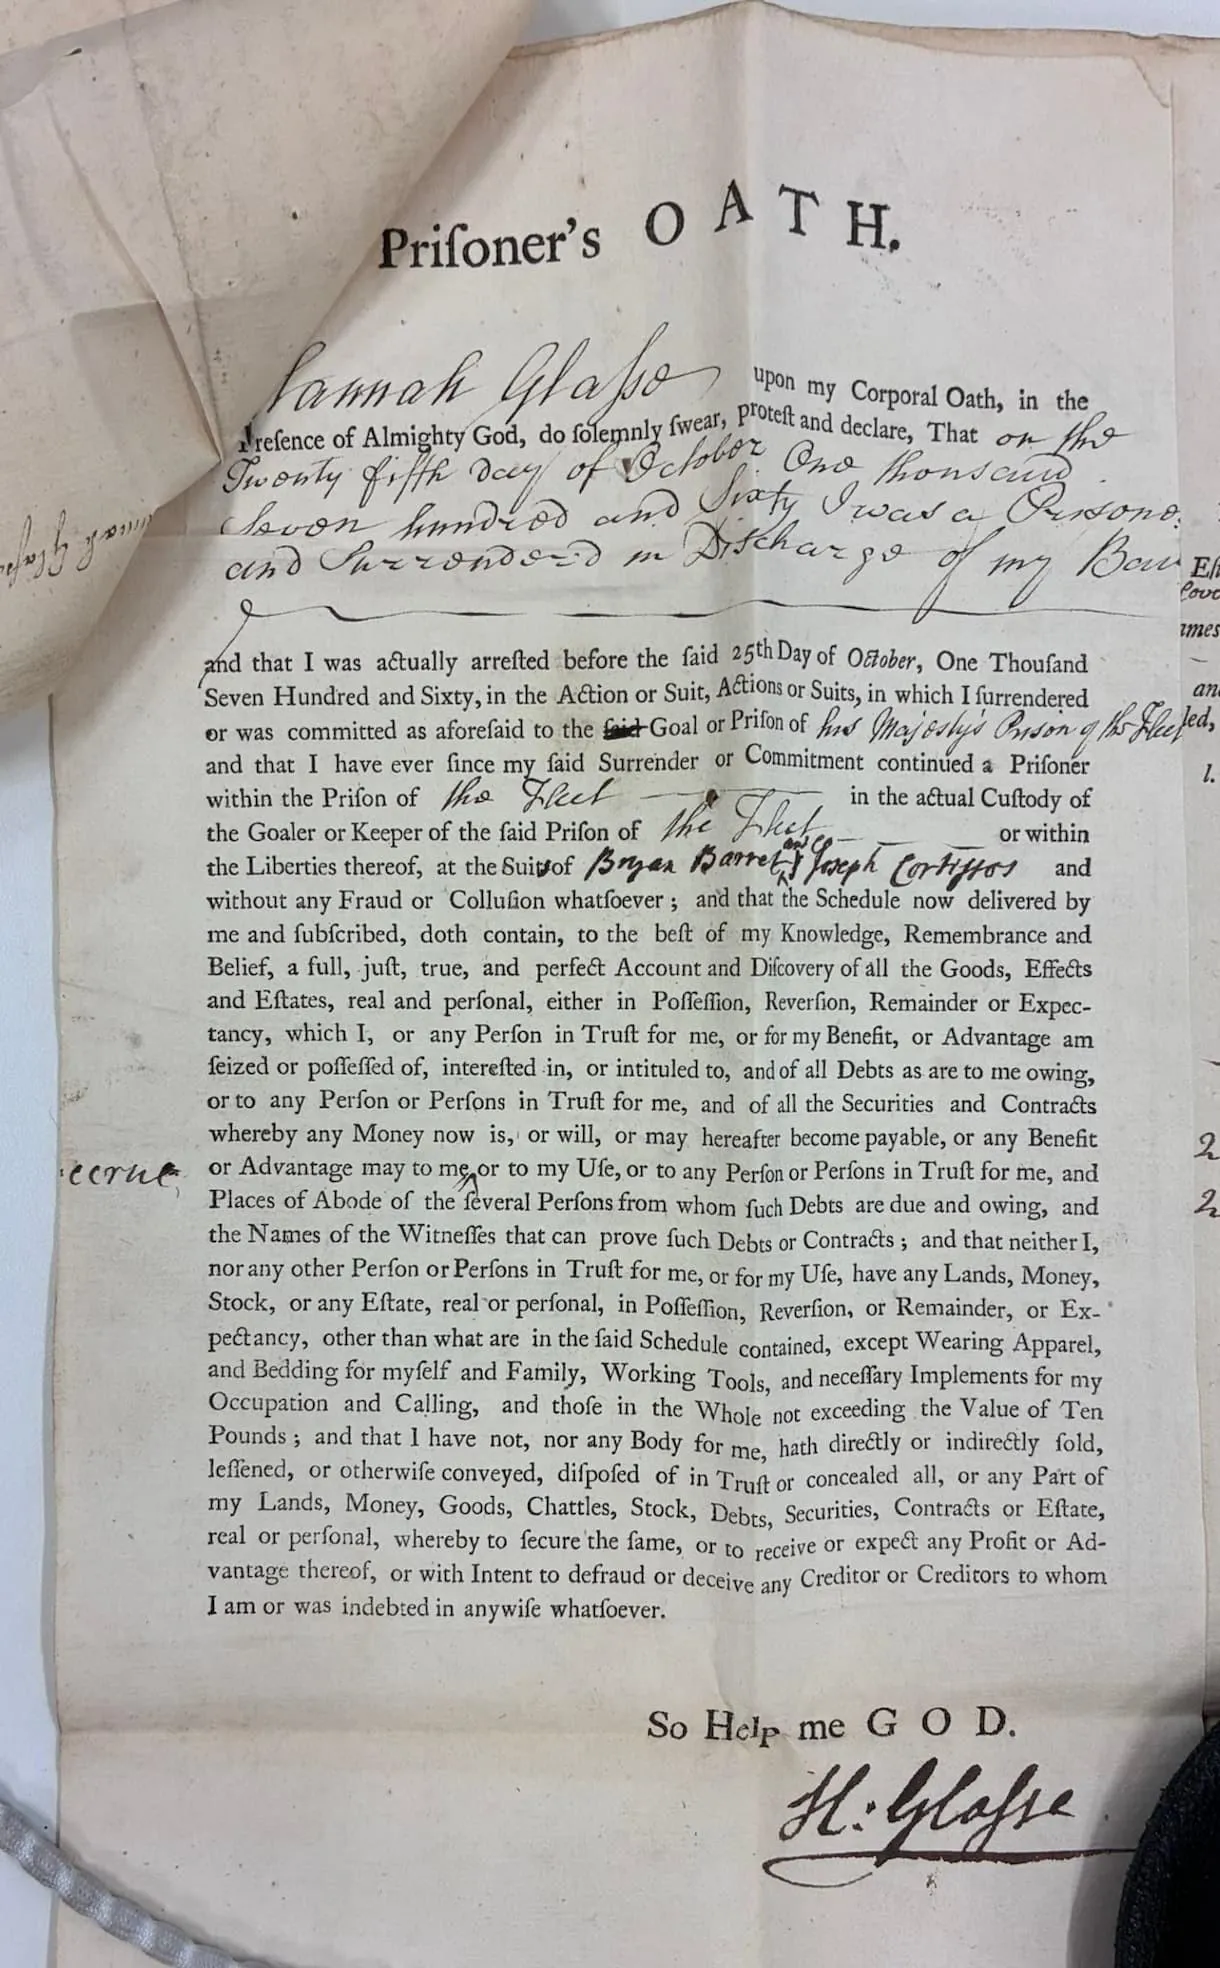 Priſoner's OATH.
Hannah Glaſse upon my Corporal Oath, in the
Preſence of Almighty God, do ſolemnly ſwear, proteſt and declare, That on the
Twenty fifth day of October One thousand
Seven hundred and Sixty I was a Prisoner
and Surrendered in Discharge of my Bail
and that I was actually arreſted before the ſaid 25th Day of October, One Thouſand
Seven Hundred and Sixty, in the Action or Suit, Actions or Suits, in which I ſurrendered
or was committed as aforeſaid to the ſaid Goal or Priſon of his Majesty's Prison of the Fleet
and that I have ever ſince my ſaid Surrender or Commitment continued a Priſoner
within the Priſon of the Fleet in the actual Cuſtody of
the Goaler or Keeper of the ſaid Priſon of the Fleet or within
the Liberties thereof, at the Suit of Bryan Barret and Co & Joseph Cortissos and
without any Fraud or Colluſion whatſoever; and that the Schedule now delivered by
me and ſubſcribed, doth contain, to the beſt of my Knowledge, Remembrance and
Belief, a full, juſt, true, and perfect Account and Diſcovery of all the Goods, Effects
and Eſtates, real and perſonal, either in Poſſeſſion, Reverſion, Remainder or Expec-
tancy, which I, or any Perſon in Truſt for me, or for my Benefit, or Advantage am
ſeized or poſſeſſed of, intereſted in, or intituled to, and of all Debts as are to me owing,
or to any Perſon or Perſons in Truſt for me, and of all the Securities and Contracts
whereby any Money now is, or will, or may hereafter become payable, or any Benefit
accrue or Advantage may to me, or to my Uſe, or to any Perſon or Perſons in Truſt for me, and
Places of Abode of the ſeveral Perſons from whom ſuch Debts are due and owing, and
the Names of the Witneſſes that can prove ſuch Debts or Contracts; and that neither I,
nor any other Perſon or Perſons in Truſt for me, or for my Uſe, have any Lands, Money,
Stock, or any Eſtate, real or perſonal, in Poſſeſſion, Reverſion, or Remainder, or Ex-
pectancy, other than what are in the ſaid Schedule contained, except Wearing Apparel,
and Bedding for myſelf and Family, Working Tools, and neceſſary Implements for my
Occupation and Calling, and thoſe in the Whole not exceeding the Value of Ten
Pounds; and that I have not, nor any Body for me, hath directly or indirectly ſold,
leſſened, or otherwiſe conveyed, diſpoſed of in Truſt or concealed all, or any Part of
my Lands, Money, Goods, Chattles, Stock, Debts, Securities, Contracts or Eſtate,
real or perſonal, whereby to ſecure the ſame, or to receive or expect any Profit or Ad-
vantage thereof, or with Intent to defraud or deceive any Creditor or Creditors to whom
I am or was indebted in anywiſe whatſoever.
So Help me GOD.
H: Glaſse